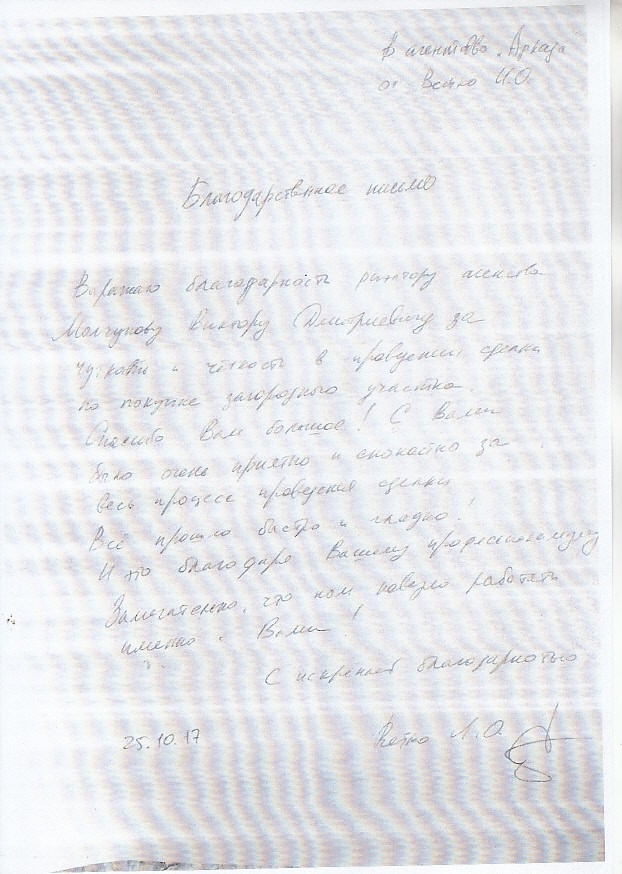 В агентство "Аркада"
от Ветко Л.О.
Благодарственное письмо
Выражаю благодарность риэлтору агенства
Молчунову Виктору Дмитриевичу за
чуткость и чёткость в проведении сделки
по покупке загородного участка.
Спасибо Вам большое! С Вами
было очень приятно и спокойно за
весь процесс проведения сделки
Всё прошло быстро и гладко!
И это благодаря Вашему професионализму
Замечательно, что нам повезло работать
именно с Вами!
С искренней благодарностью
25.10.17 Ветко Л.О.